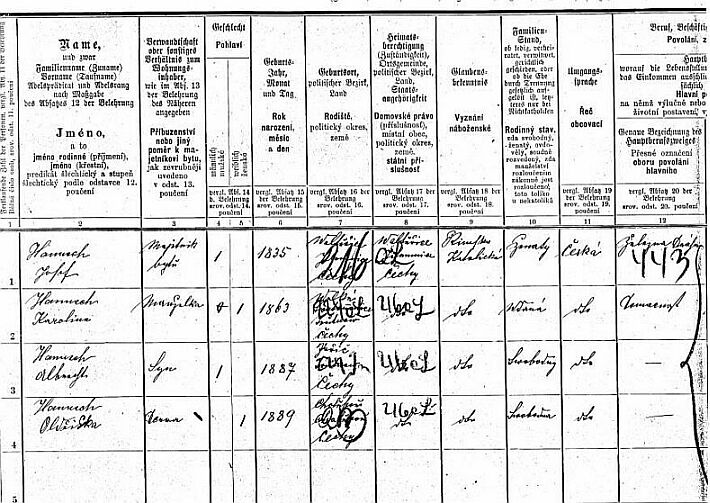 Name,
und zwar
Familienname (Zuname)
Vorname (Taufname)
Adelsprädicat und Adelsrang
nach Maßgabe
des Absatzes 12 der Belehrung
Jméno,
a to
jméno rodinné (příjmení),
jméno (křestní),
predikát šlechtický a stupeň
šlechtický podle odstavce 12.
poučení
Verwandtschaft
oder sonstiges
Verhältnis zum
Wohnungs-
inhaber,
wie im Abf. 13
der Belehrung
des Näheren
angegeben
Příbuzenství
nebo jiný
poměr k ma-
jetníkovi bytu,
jak zevrubněji
uvedeno
v odst. 13.
Geschlecht
Pohlaví
männlich
mužské
weiblich
ženské
vergl. Abf. 14
d. Belehrung
srov. odst. 14.
poučení
Geburts-
Jahr,
Monat
und Tag.
Rok
narození,
měsíc
a den
vergl. Absatz 15
der Belehrung
srov. odst. 15.
poučení
Geburtsort,
politischer Bezirk,
Land
Rodiště,
politický okres,
země
vergl. Absatz 16 der
Belehrung
srov. odst. 16.
poučení
Heimats-
berechtigung
(Zuständigkeit),
Ortsgemeinde,
politischer Bezirk,
Land,
Staats-
angehörigkeit
Domovské právo
(příslušnost),
místní obec,
politický okres,
země,
státní pří-
slušnost
vergl. Absatz 17 der
Belehrung
srov. odst. 17.
poučení
Glaubens-
bekenntnis
Vyznání
náboženské
vergl. Absatz 18
der Belehrung
srov. odst. 18.
poučení
Familien-
Stand,
ob ledig, verhei-
ratet, verwitwet,
gerichtlich
geschieden, oder
ob die Ehe
durch Trennung
gesetzlich auf-
gelöst ist, letz-
teres nur bei
Nichtkatholiken
Rodinný stav,
zda svobodný,
ženatý, ovdo-
vělý, soudně
rozvedený, zda
manželství
rozloučením
zákonně jest
rozloučeno,
toto toliko
u nekatolíků
Umgangs-
sprache
Řeč
obcovací
vergl. Absatz 19
der Belehrung
srov. odst. 19.
poučení
Beruf, Beschäfti
Povolání, z
Hauptl
worauf die Lebensstellu
das Einkommen ausschlie
Hlavní p
na němž výlučně nebo
životní postavení, v
Genaue Bezeichnung des
Hauptberufszweiges
Přesné označení
oboru povolání
hlavního
vergl. Absatz 20 der
Belehrung
srov. odst. 20. poučení
1 2 3 4 5 6 7 8 9 10 11 12
1 Hanusch
Josef
Majitel
bytu
1
1835
Čechy
Čechy
Římsko
Katolická
Ženatý
Česká
443
2 Hanusch
Karolina
Manželka
1
1863
Čechy
dto
Vdaná
dto
Domácnost
3 Hanusch
Albrecht
Syn
1
1887
Čechy
dto
Svobodný
dto
—
4 Hanusch
Oldřiška
Dcera
1
1889
Čechy
dto
dto
Svobodna
dto
—
5